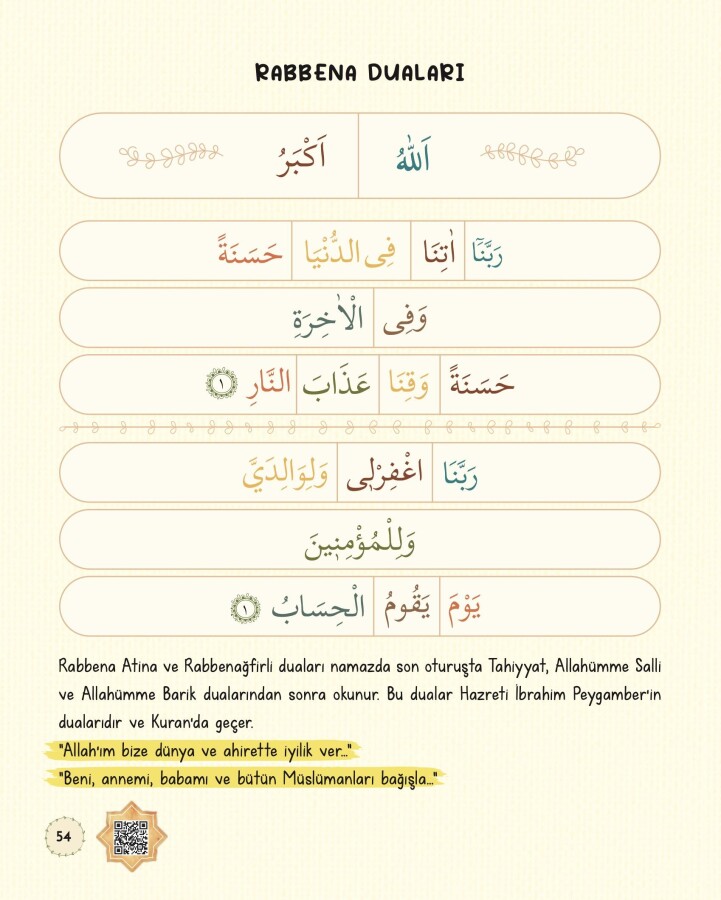 RABBENA DUALARI
اَللّٰهُ اَكْبَرُ
رَبَّنَٓا اٰتِنَا فِى الدُّنْيَا حَسَنَةً
وَفِى الْاٰخِرَةِ
حَسَنَةً وَقِنَا عَذَابَ النَّارِ ١
رَبَّنَا اغْفِرْلٖى وَلِوَالِدَيَّ
وَلِلْمُؤْمِنٖينَ
يَوْمَ يَقُومُ الْحِسَابُ ١
Rabbena Atina ve Rabbenağfirli duaları namazda son oturuşta Tahiyyat, Allahümme Salli
ve Allahümme Barik dualarından sonra okunur. Bu dualar Hazreti İbrahim Peygamber'in
dualarıdır ve Kuran'da geçer.
"Allah'ım bize dünya ve ahirette iyilik ver..."
"Beni, annemi, babamı ve bütün Müslümanları bağışla..."
54